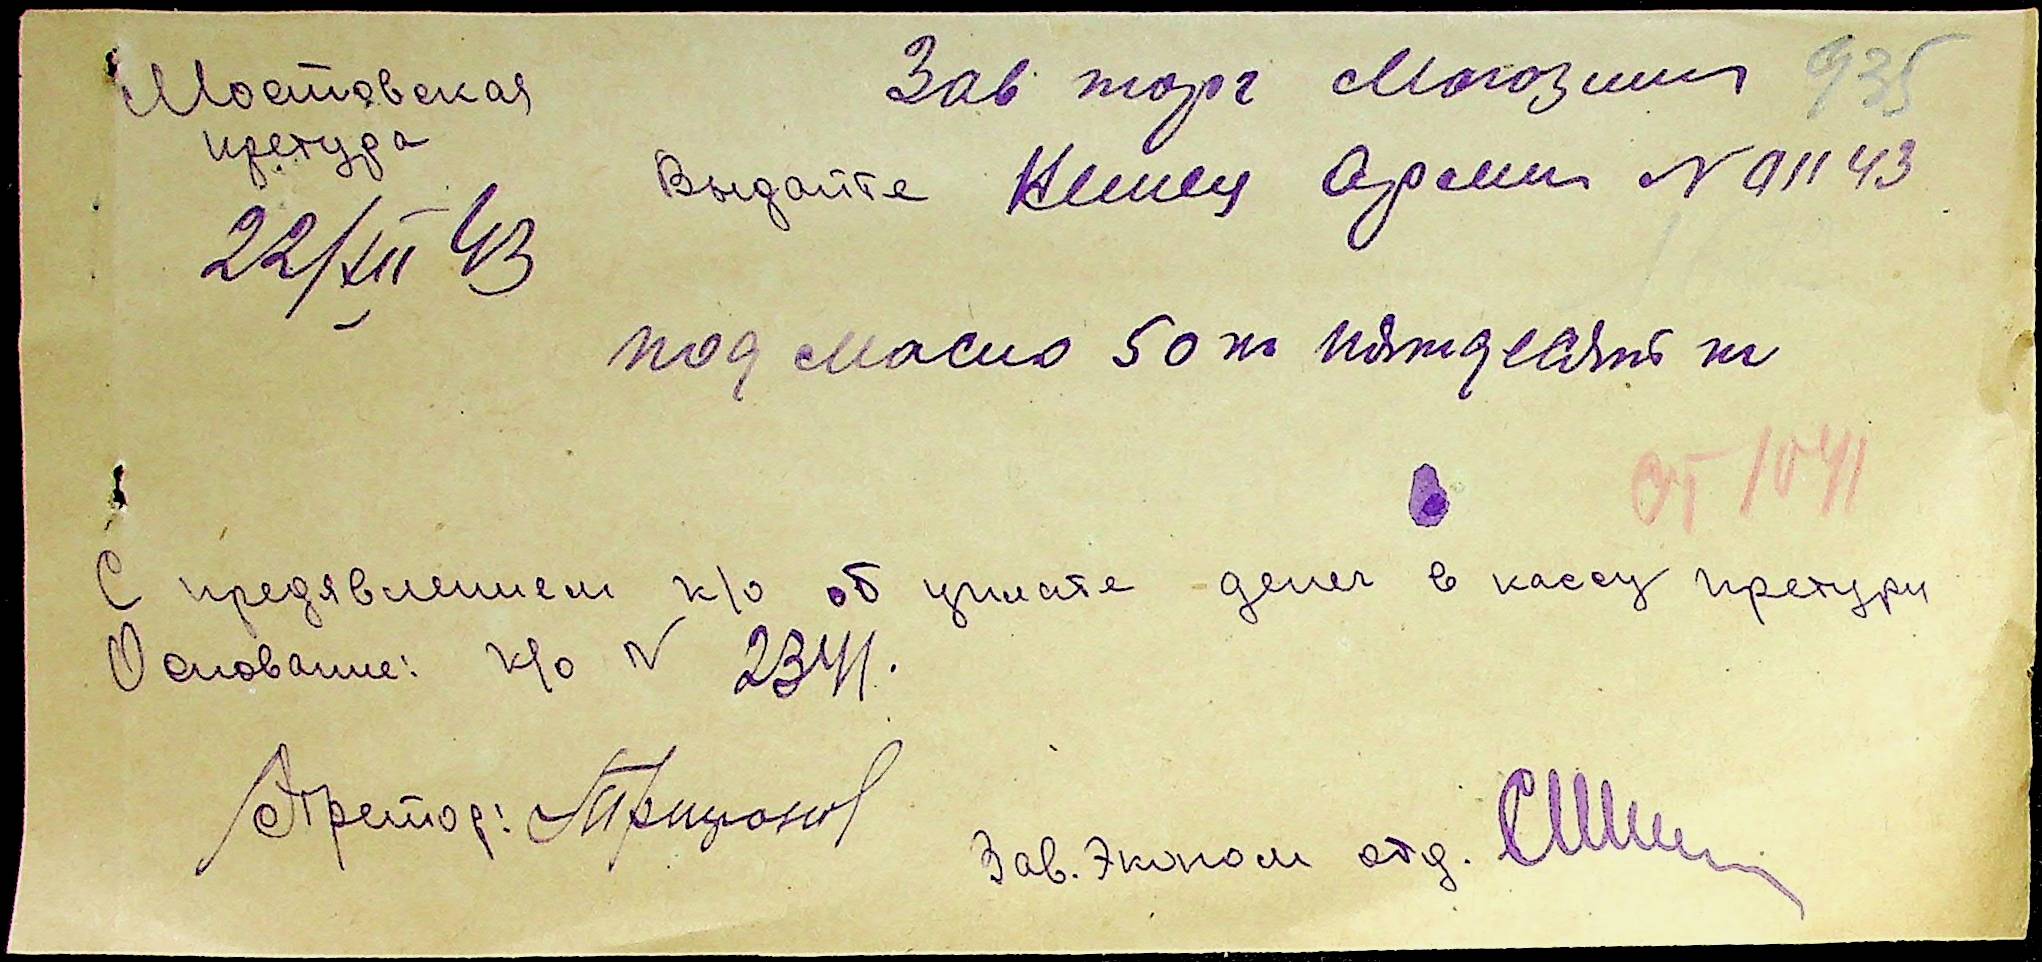 Мостовская
претура
22/XII 43
Зав торг Магозина 935
Выдайте Немец Армии N 91143
под масло 50 кг пятдесят кг
от 1041
С предявлением к/о об уплате денег в кассу претури
Основание: к/о N 2341.
Претор:
Зав. Эконом отд.